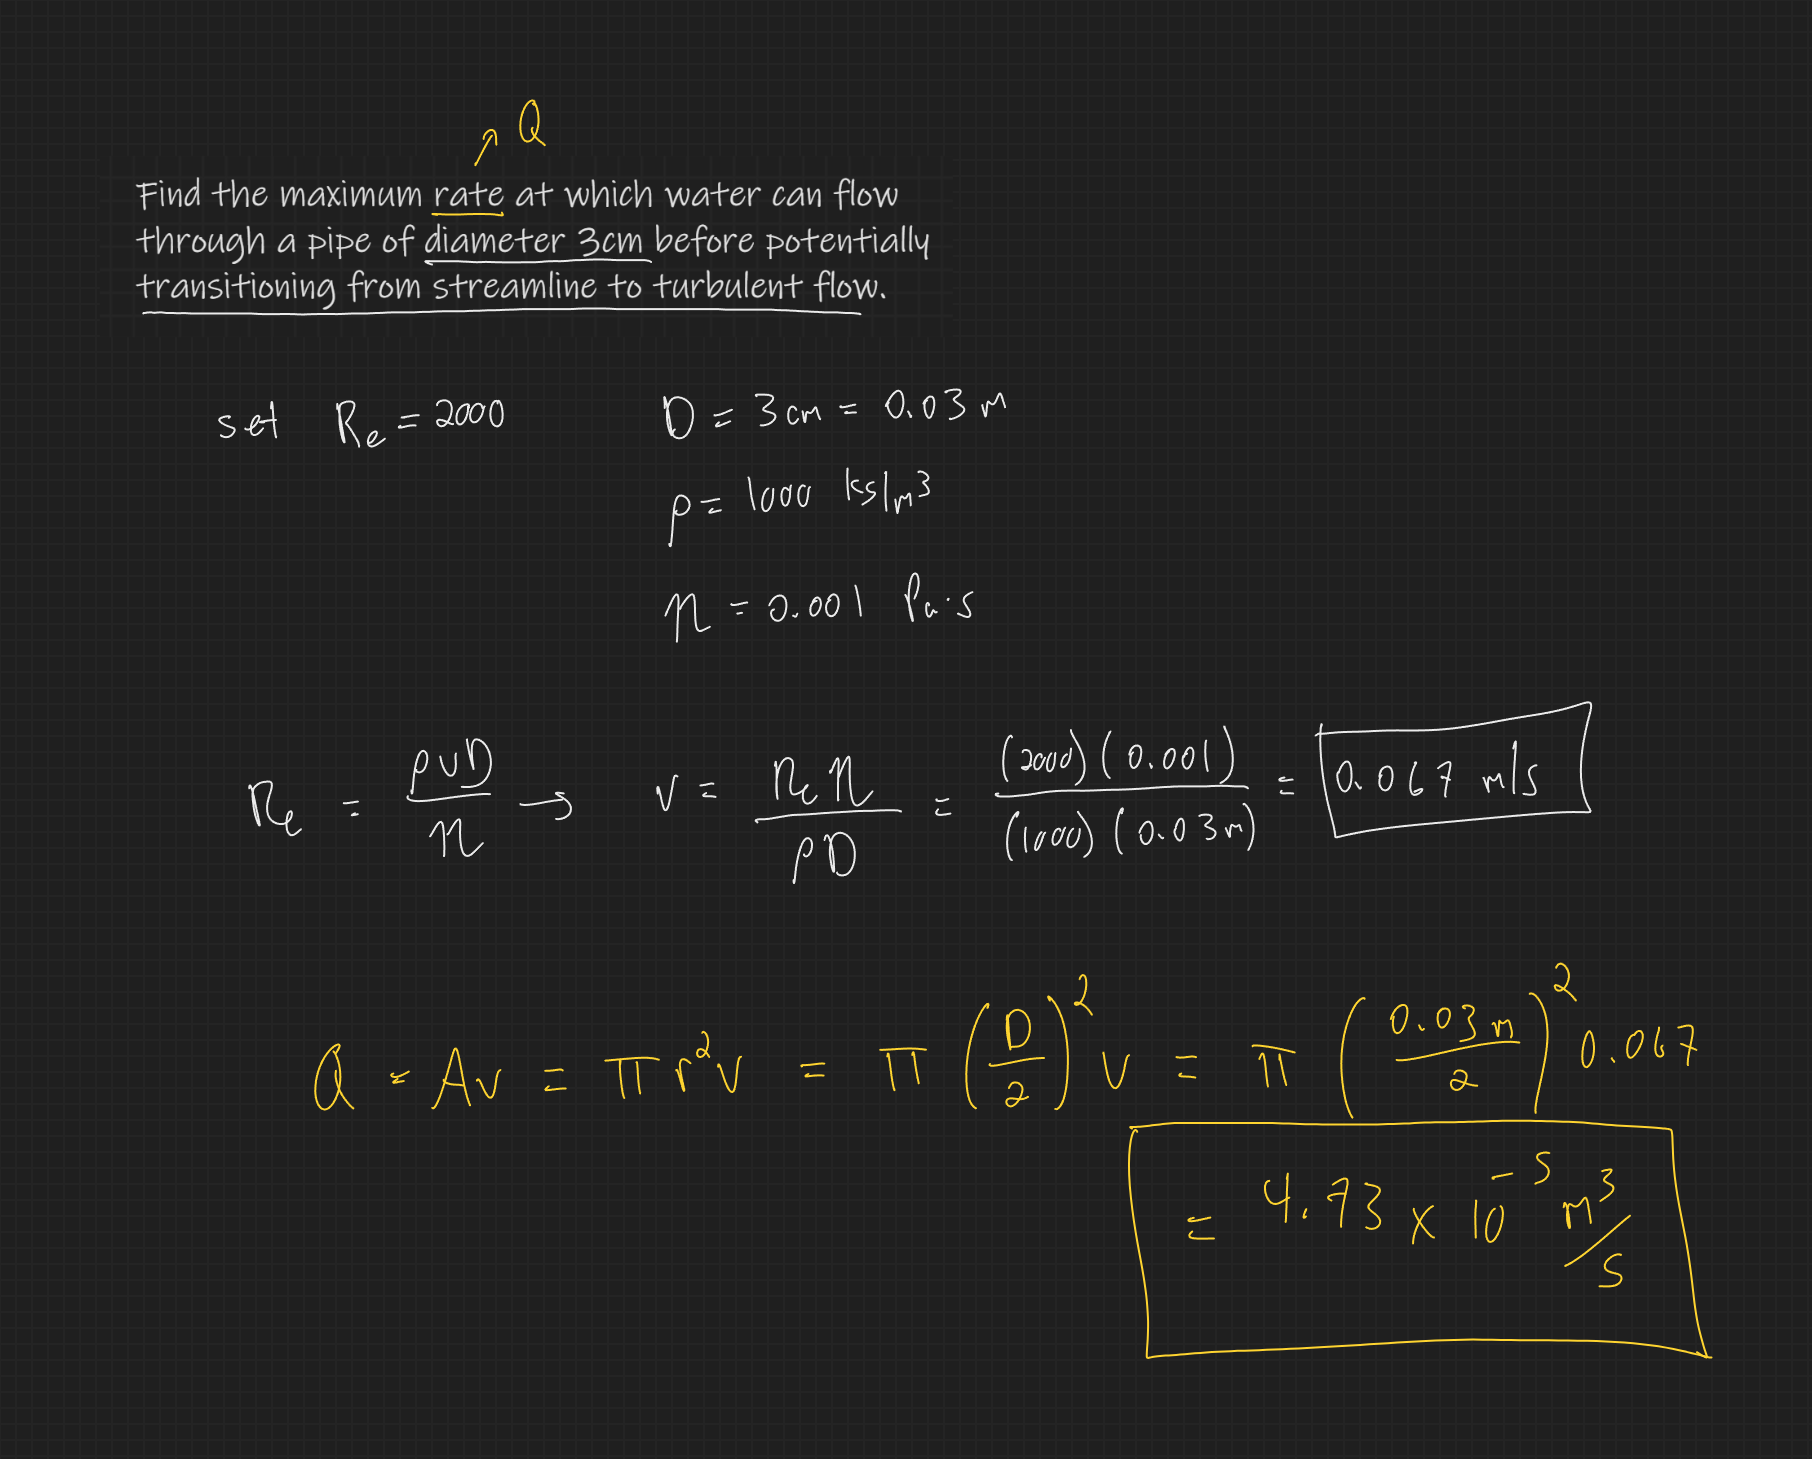 Q
Find the maximum rate at which water can flow
through a pipe of diameter 3cm before potentially
transitioning from streamline to turbulent flow.
set Re = 2000
D = 3cm = 0.03 m
ρ = 1000 kg/m³
η = 0.001 Pa·s
Re = ρvD/η → v = Reη/ρD = (2000)(0.001)/(1000)(0.03m) = 0.067 m/s
Q = Av = πr²v = π(D/2)²v = π(0.03m/2)² 0.067
= 4.73 x 10⁻⁵ m³/s